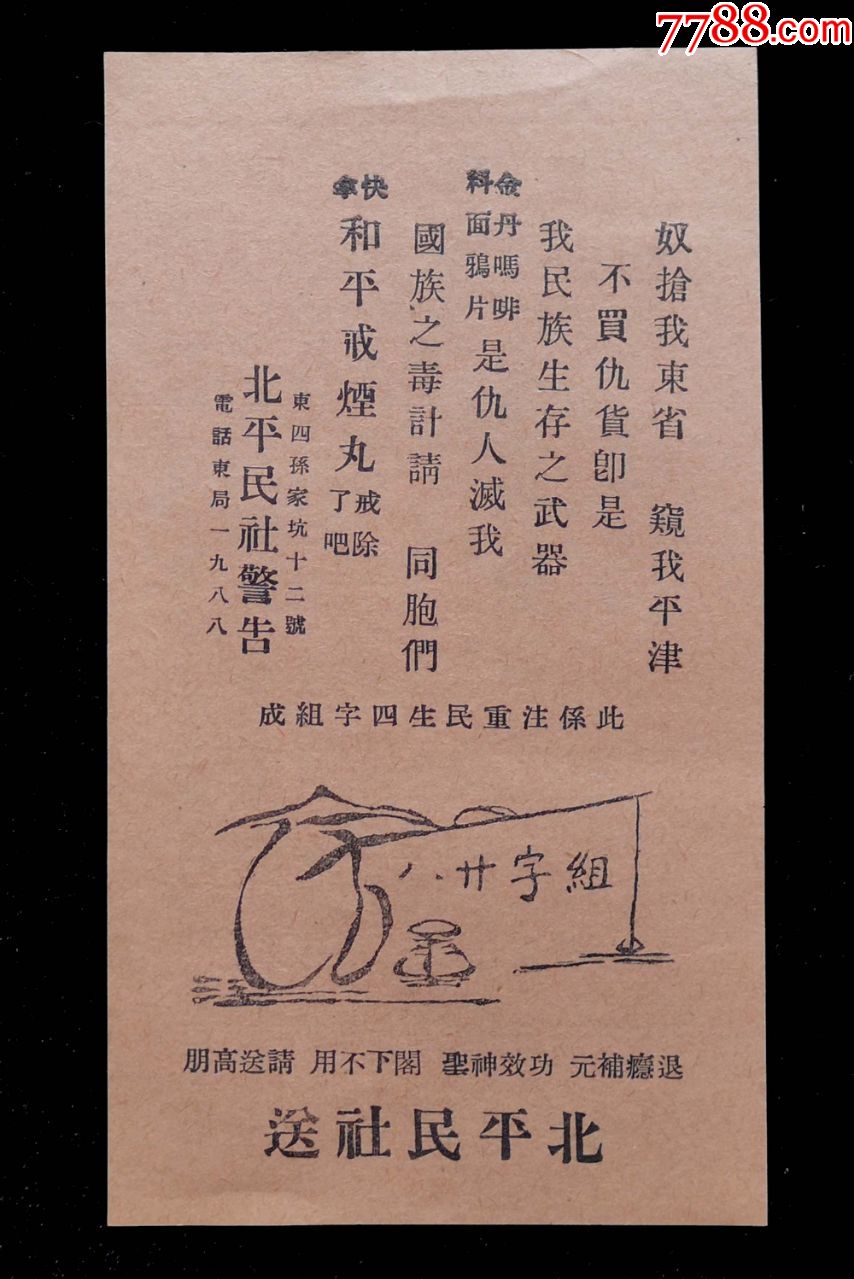 7788.com
奴搶我東省 窺我平津
不買仇貨卽是
我民族生存之武器
金丹嗎啡
料面鴉片
是仇人滅我
國族之毒計請 同胞們
快拿
和平戒煙丸
戒除
了吧
東四孫家坑十二號
北平民社警告
電話東局一九八八
此係注重民生四字組成
八廿字組
退癮補元 功效神聖 閣下不用 請送高朋
北平民社送